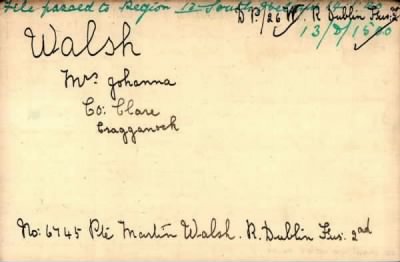 File passed to Region
DP/26 W. R Dublin Fus: 2
13/D/1560
Walsh
Mrs Johanna
Co: Clare
Craggaknock
No: 6745 Pte Martin Walsh. R. Dublin Fus: 2nd